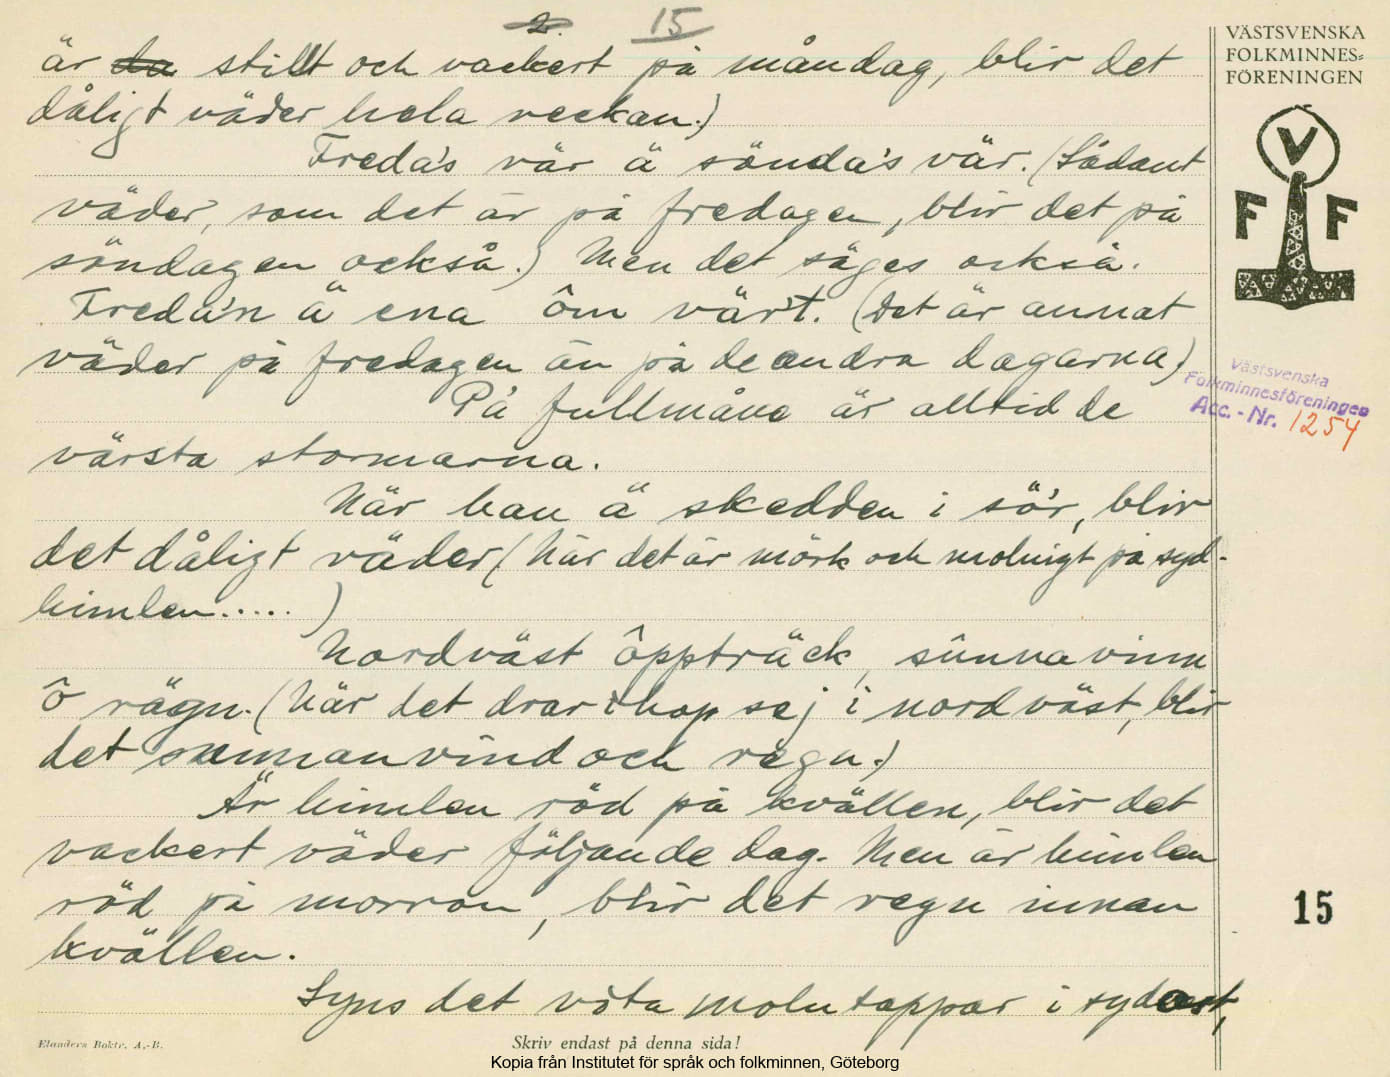 2. 15
är da stillt och vackert på måndag, blir det
dåligt väder hela veckan.)
Freda's vär ä sönda's vär. (Sådant
väder, som det är på fredagen, blir det på
söndagen också.) Men det säges också.
Freda'n ä ena ôm vär't. (Det är annat
väder på fredagen än på de andra dagarna)
På fullmåne är alltid de
värsta stormarna.
När han ä skedden i sö'r, blir
det dåligt väder (När det är mörk och molnigt på syd-
himlen.....)
Nordväst ôppträck, sûnnavinn
ô rägn. (När det drar ihop sej i nordväst, blir
det sunnanvind och regn.)
Är himlen röd på kvällen, blir det
vackert väder följande dag. Men är himlen
röd på morron, blir det regn innan
kvällen.
Syns det våta molntappar i sydost,
VÄSTSVENSKA
FOLKMINNES=
FÖRENINGEN
V
F F
Västsvenska
Folkminnesföreningen
Acc.-Nr. 1254
15
Elanders Boktr. A.-B.
Skriv endast på denna sida!
Kopia från Institutet för språk och folkminnen, Göteborg